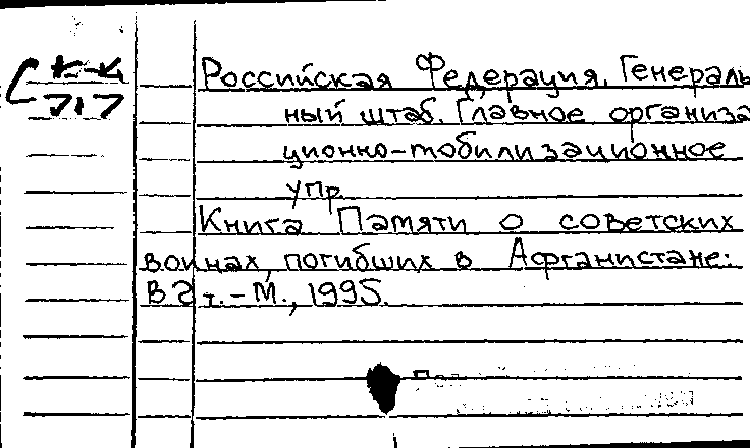 Российская Федерация. Генераль
ный штаб. Главное организа
ционно-мобилизационное
упр.
Книга Памяти о советских
воинах, погибших в Афганистане:
В 2 т. - М., 1995.